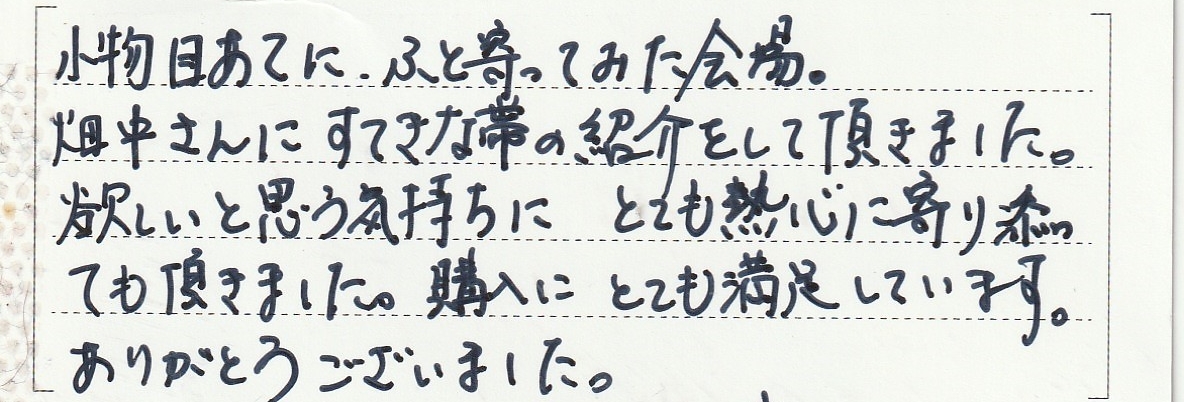 小物目あてに、ふと寄ってみた会場。
畑中さんにすてきな帯の紹介をして頂きました。
欲しいと思う気持ちに とても熱心に寄り添っ
ても頂きました。購入に とても満足しています。
ありがとうございました。